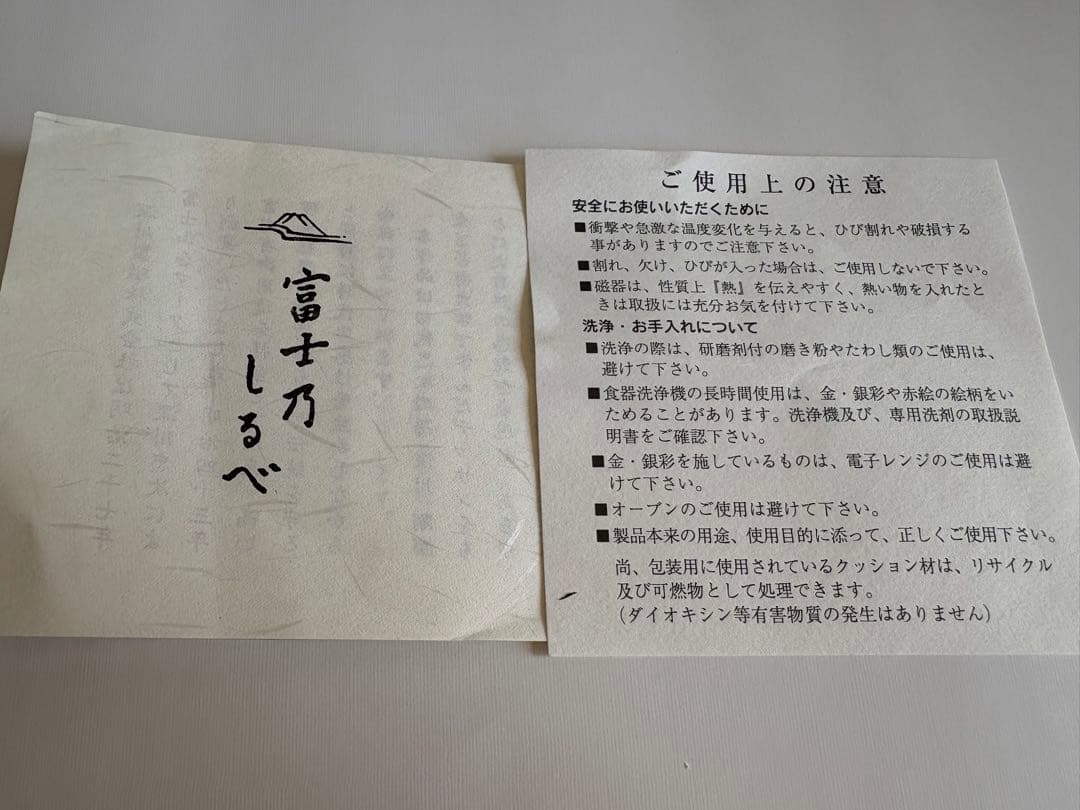 富士乃
しるべ
ご使用上の注意
安全にお使いいただくために
■衝撃や急激な温度変化を与えると、ひび割れや破損する
事がありますのでご注意下さい。
■割れ、欠け、ひびが入った場合は、ご使用しないで下さい。
■磁器は、性質上『熱』を伝えやすく、熱い物を入れたと
きは取扱には充分お気を付けて下さい。
洗浄・お手入れについて
■洗浄の際は、研磨剤付の磨き粉やたわし類のご使用は、
避けて下さい。
■食器洗浄機の長時間使用は、金・銀彩や赤絵の絵柄をい
ためることがあります。洗浄機及び、専用洗剤の取扱説
明書をご確認下さい。
■金・銀彩を施しているものは、電子レンジのご使用は避
けて下さい。
■オーブンのご使用は避けて下さい。
■製品本来の用途、使用目的に添って、正しくご使用下さい。
尚、包装用に使用されているクッション材は、リサイクル
及び可燃物として処理できます。
(ダイオキシン等有害物質の発生はありません)